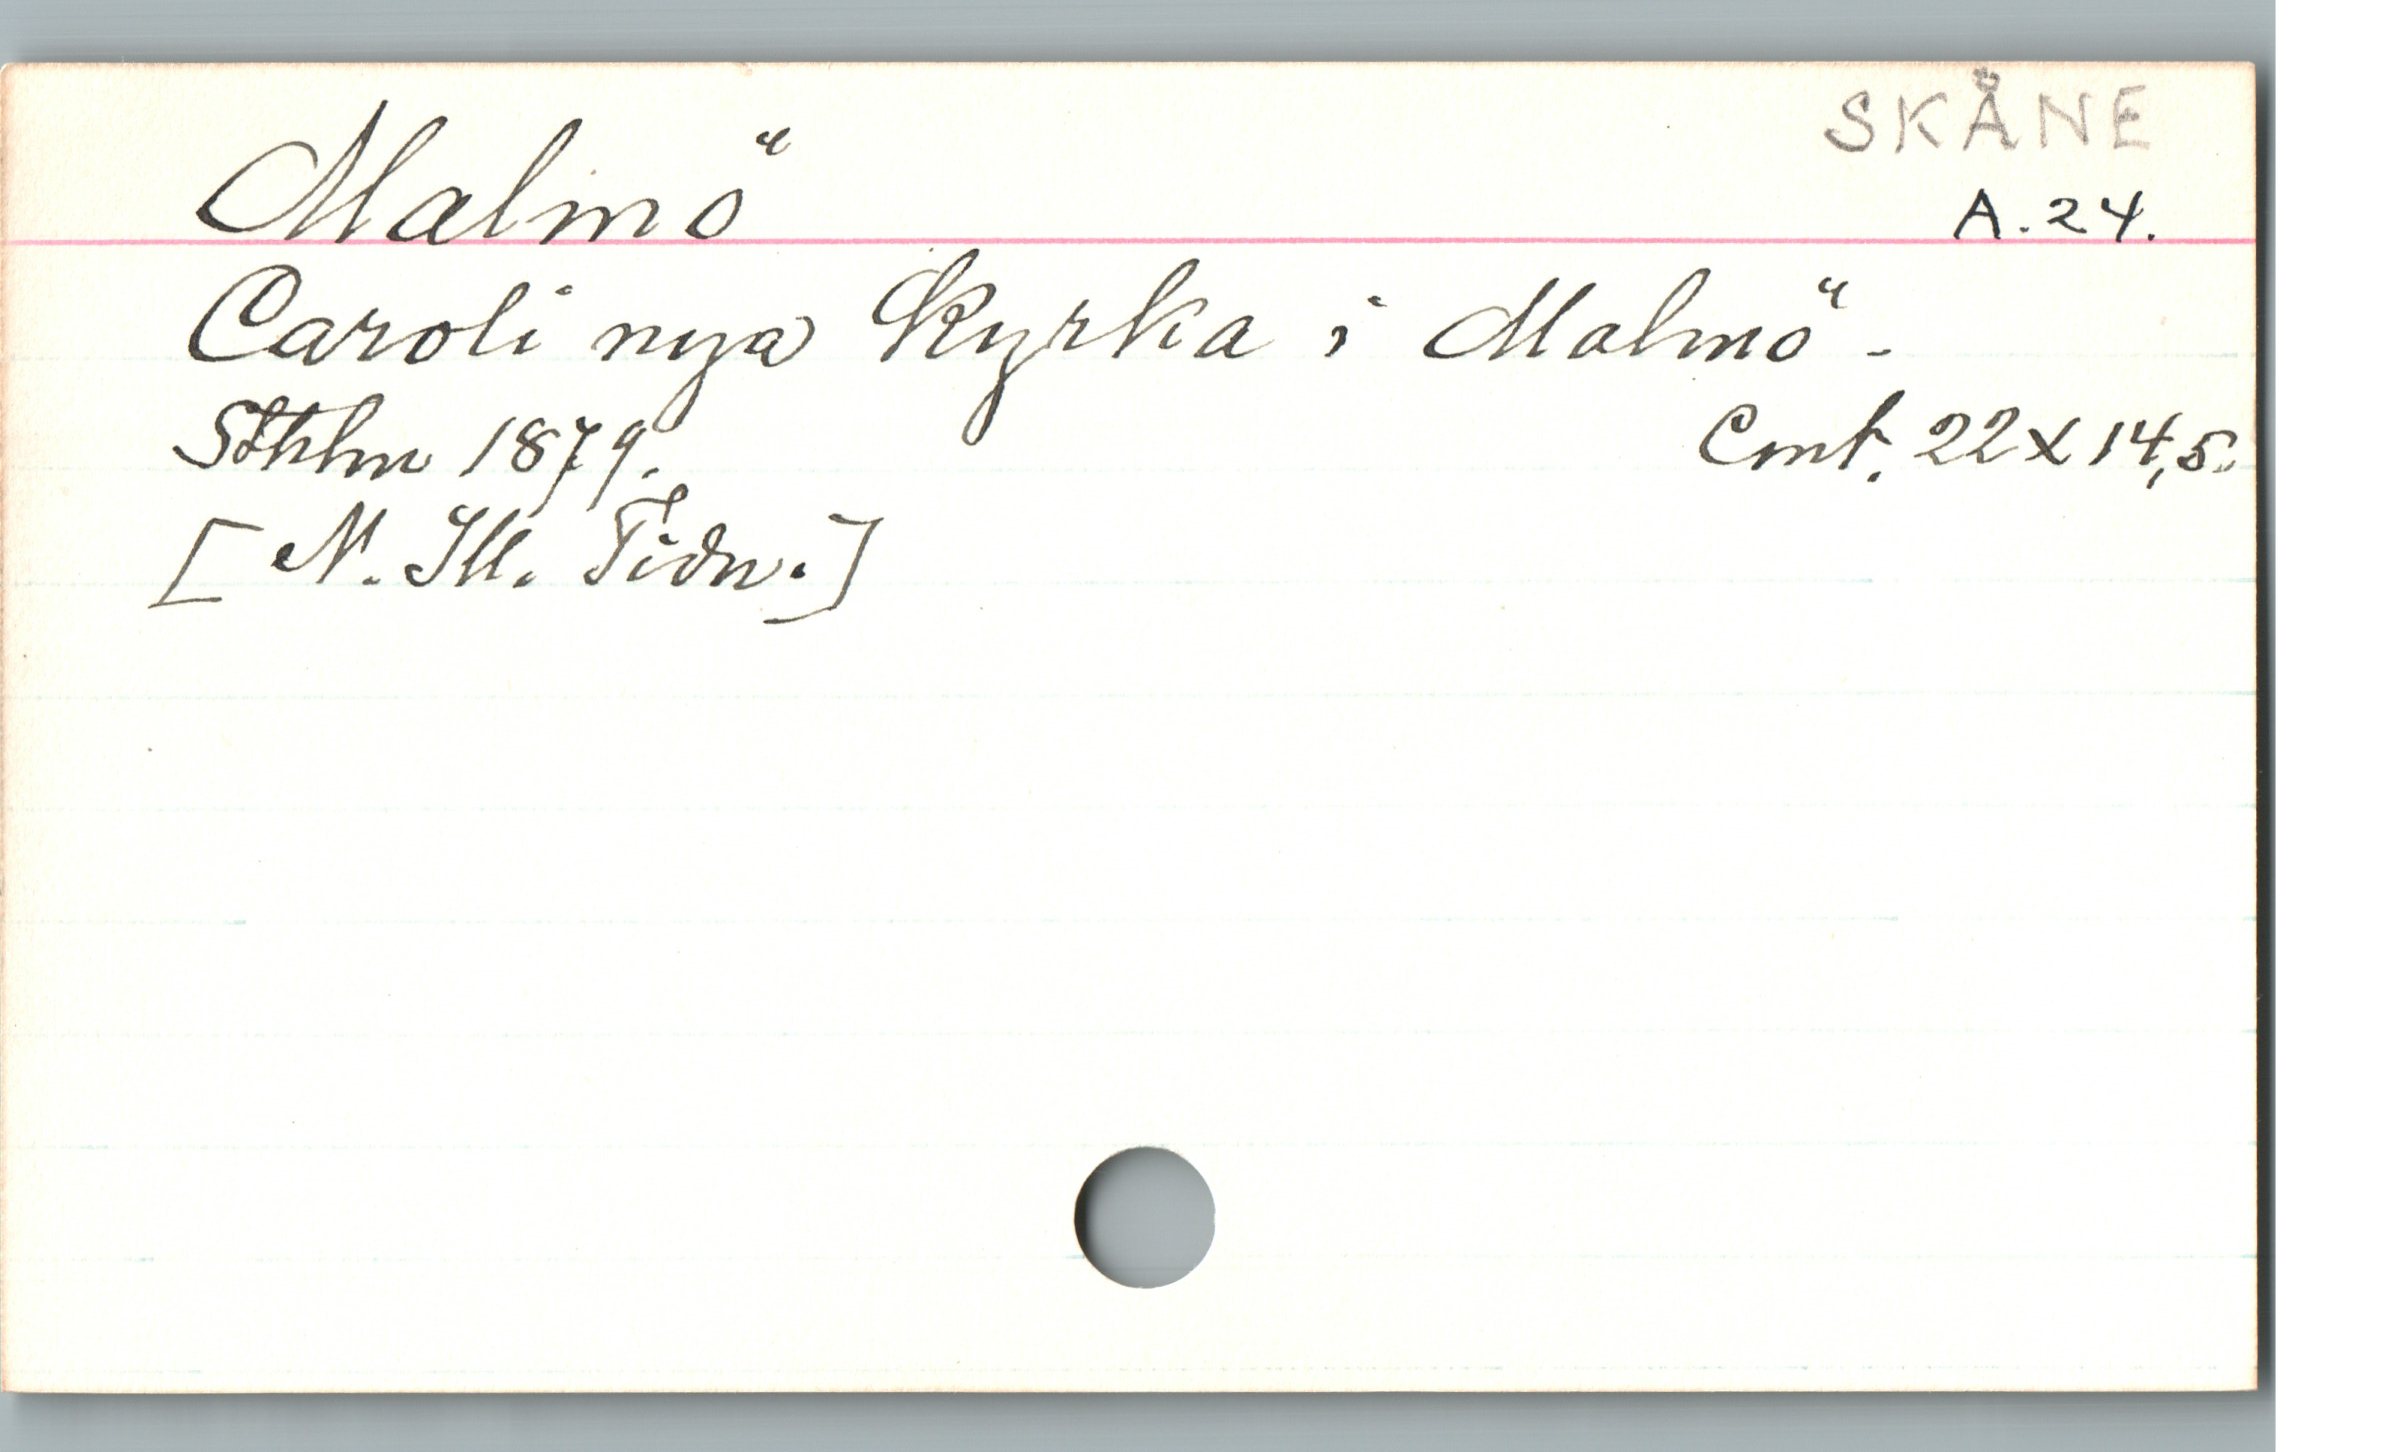 SKÅNE
Malmö
A. 24.
Caroli nya Kyrka i Malmö.
Sthlm 1879.
Cmt. 22 x 14,5.
[N. Ill. Tidn.]